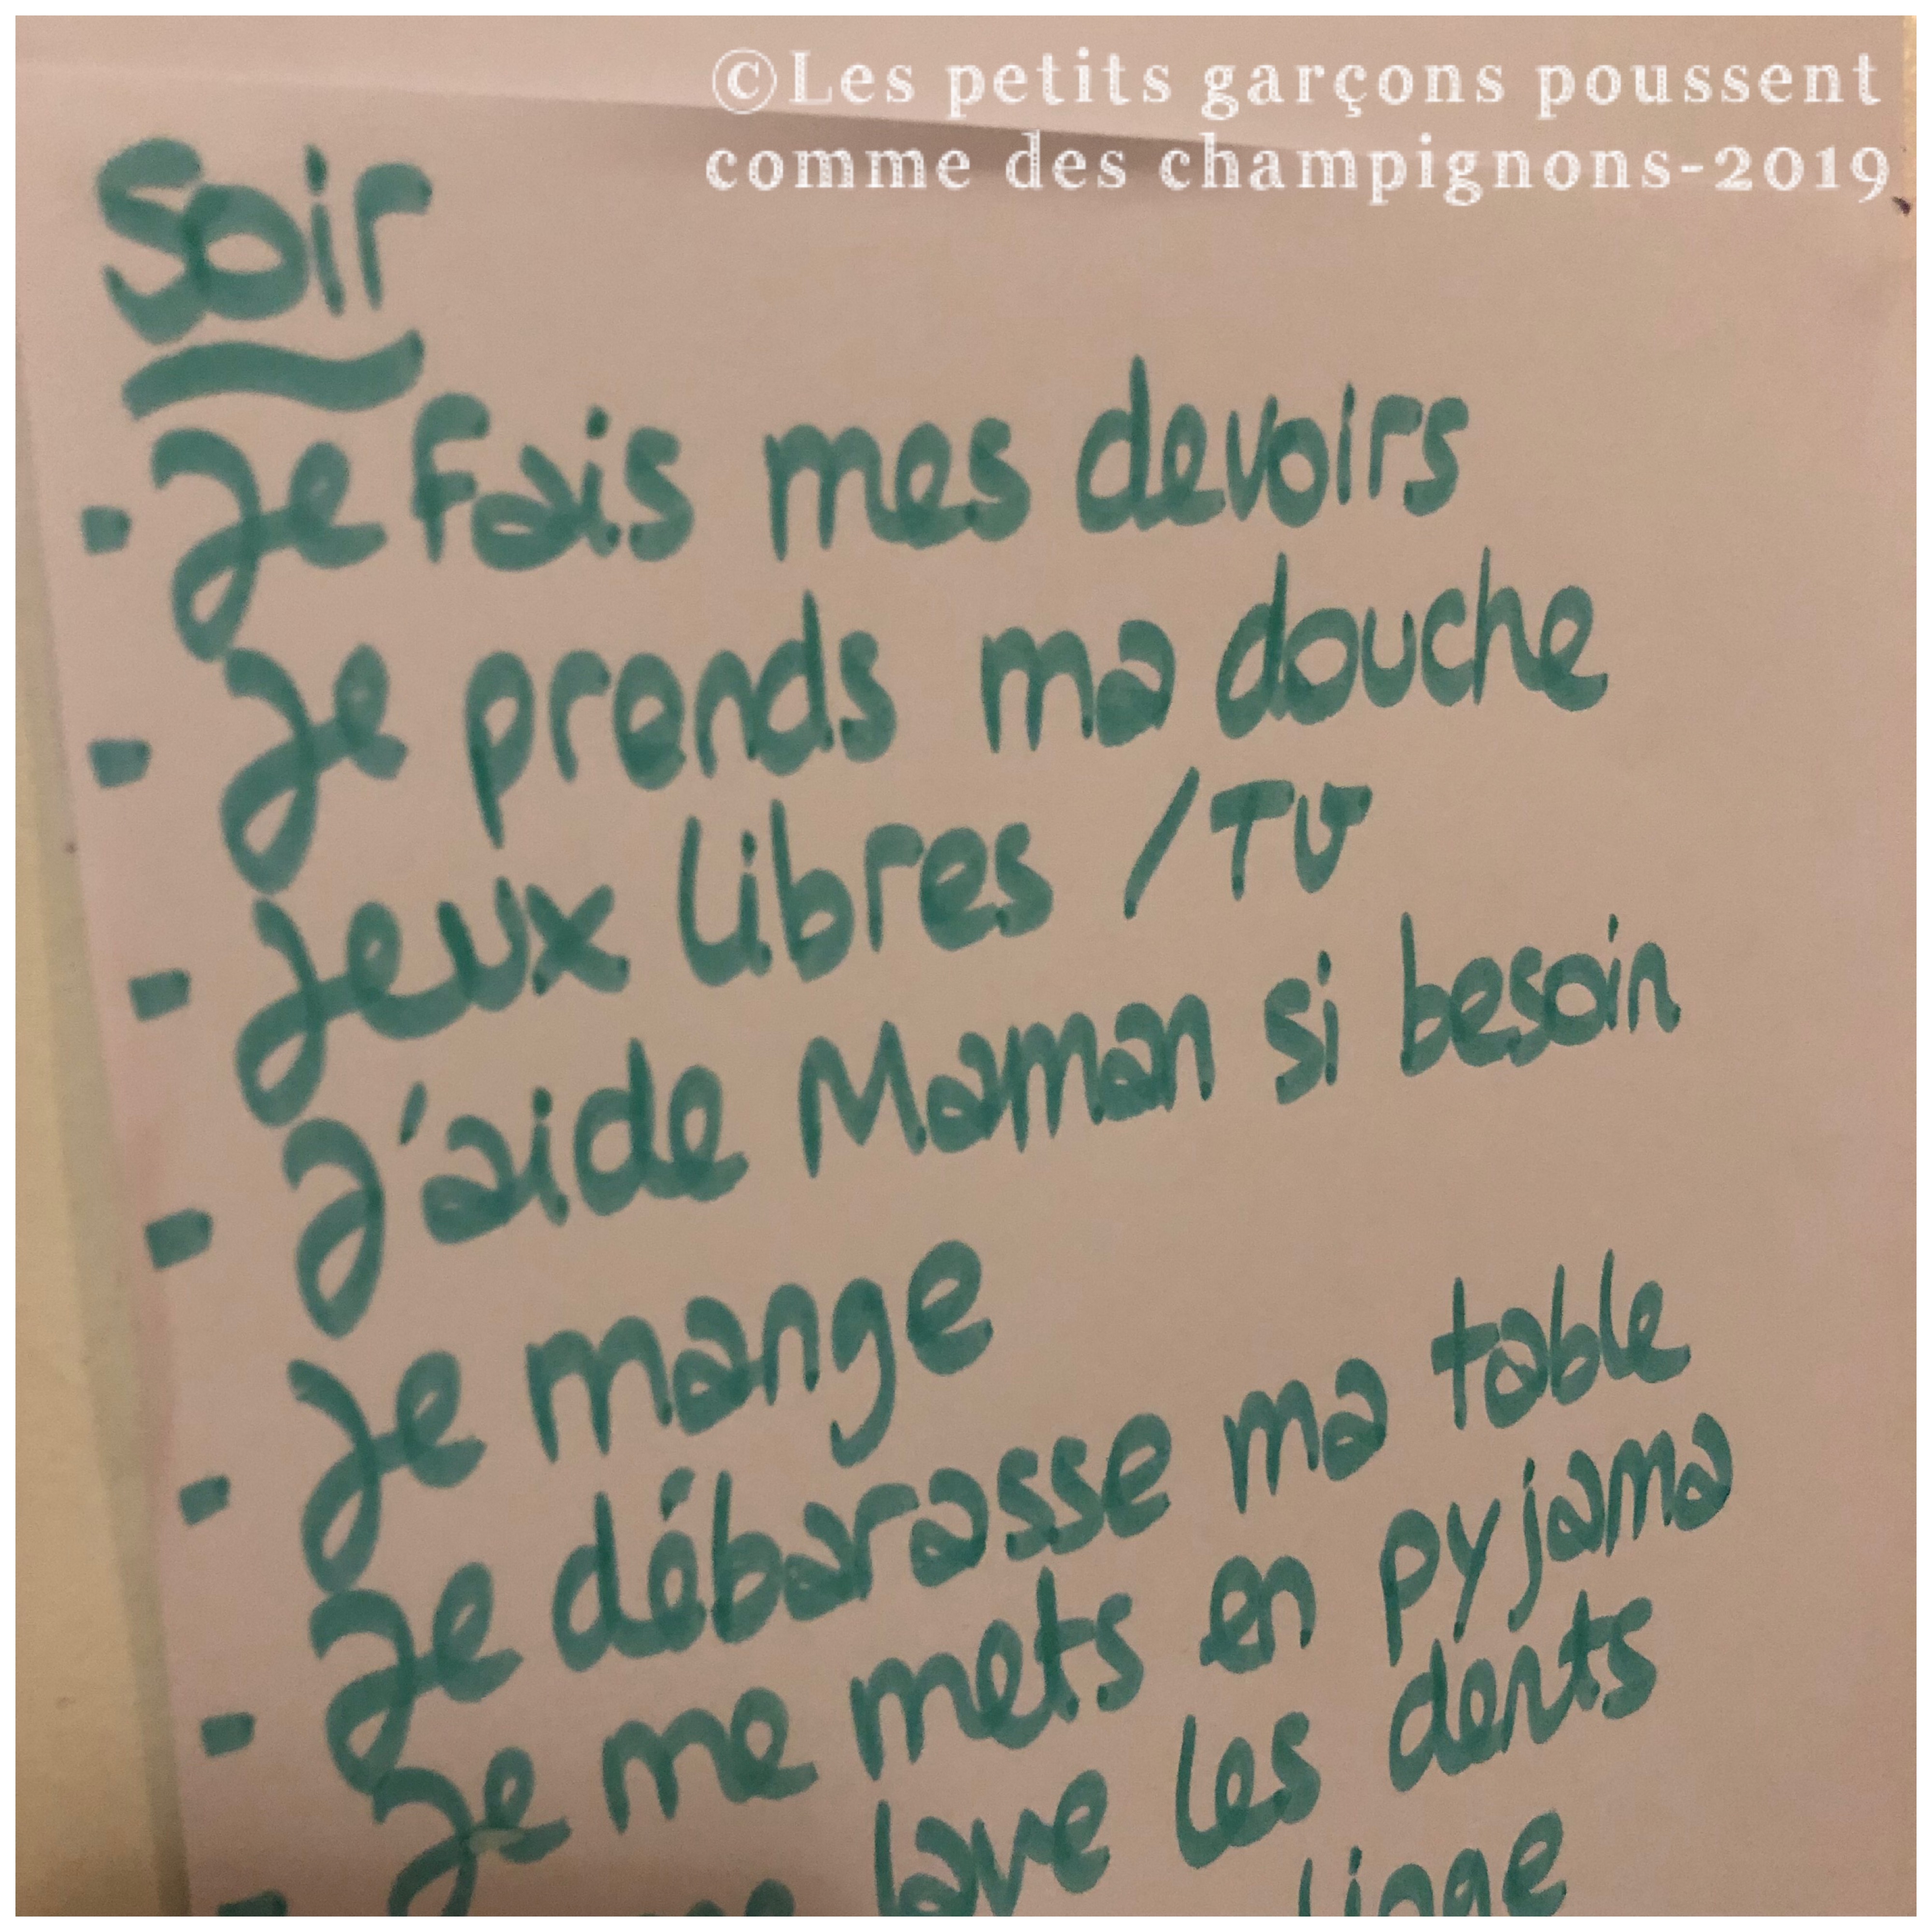 ©Les petits garçons poussent
comme des champignons-2019
Soir
- Je fais mes devoirs
- Je prends ma douche
- Jeux libres / TV
- J'aide Maman si besoin
- Je mange
- Je débarasse ma table
- Je me mets en pyjama
lave les dents
linge